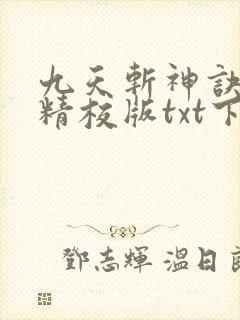 九天斬神訣
精校版txt下
鄧志輝 溫日良